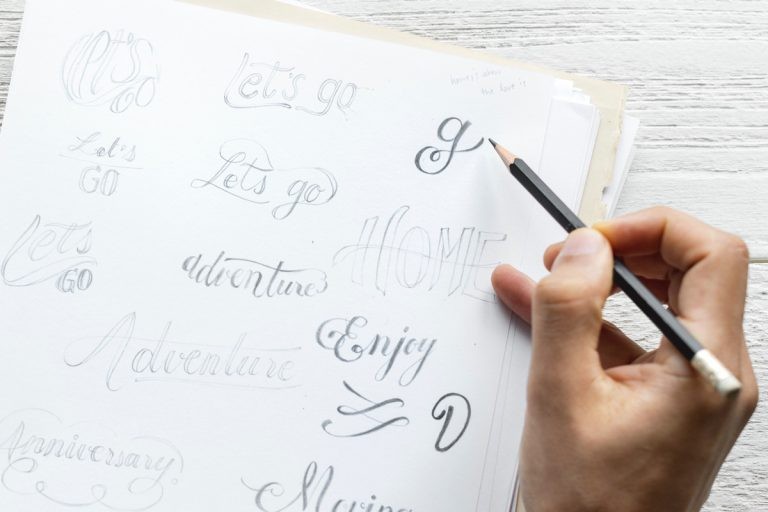 Let's
GO
Let's go
g
Let's
GO
Lets go
Let's
GO
adventure
HOME
Adventure
Enjoy
D
Anniversary
Moving